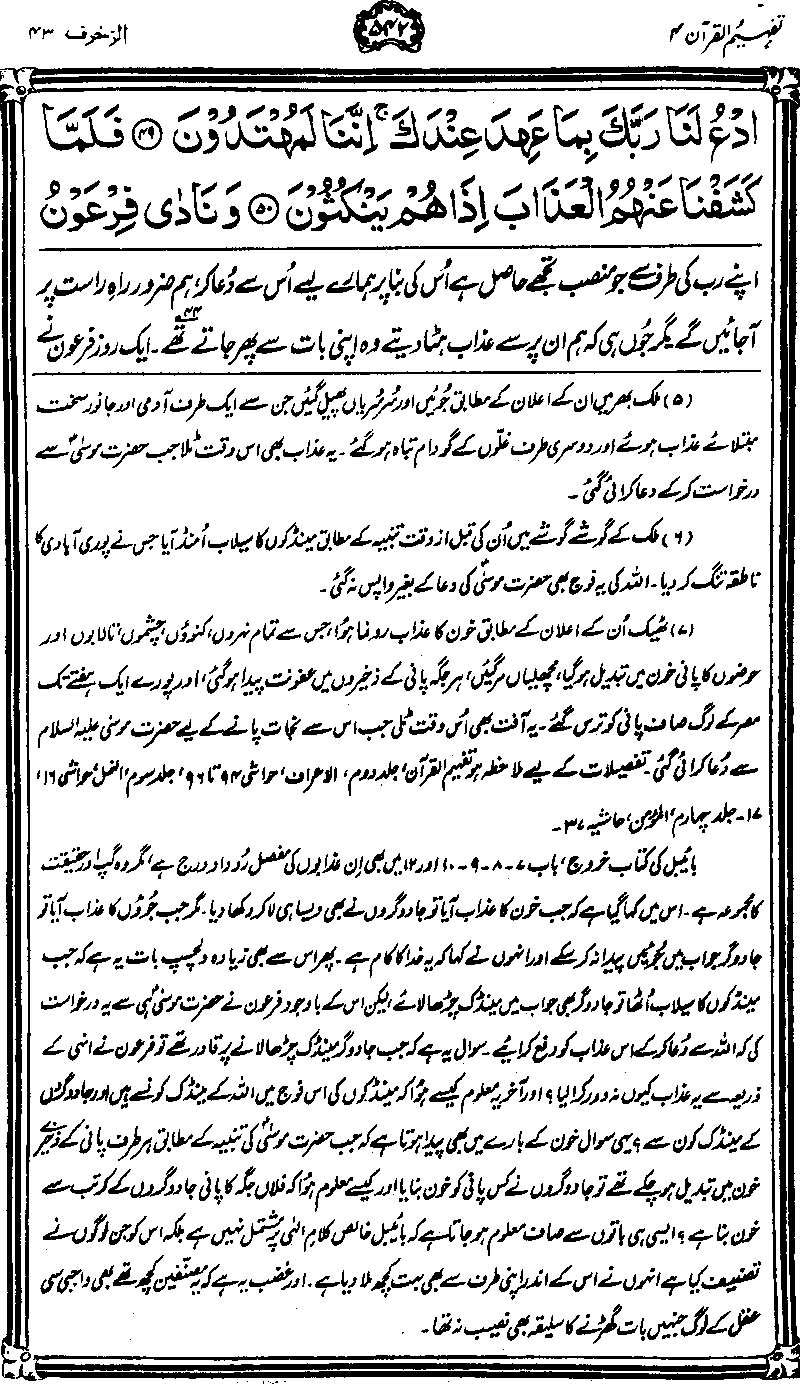 تفہیم القرآن ۴
۵۴۲
الزخرف ۴۳
ادْعُ لَنَا رَبَّكَ بِمَا عَهِدَ عِنْدَكَ ۚ اِنَّنَا لَمُهْتَدُوْنَ ﴿۴۹﴾ فَلَمَّا
كَشَفْنَا عَنْهُمُ الْعَذَابَ اِذَا هُمْ يَنْكُثُوْنَ ﴿۵۰﴾ وَنَادٰى فِرْعَوْنُ
اپنے رب کی طرف سے جو منصب تجھے حاصل ہے اُس کی بنا پر ہمارے لیے اُس سے دُعا کر، ہم ضرور راہِ راست پر
آجائیں گے۔ مگر جُوں ہی کہ ہم ان پر سے عذاب ہٹا دیتے وہ اپنی بات سے پھر جاتے تھے۴۴۔ ایک روز فرعون نے
(۵) ملک بھر میں ان کے اعلان کے مطابق جُوئیں اور سُرسُریاں پھیل گئیں جن سے ایک طرف آدمی اور جانور سخت
مبتلائے عذاب ہوئے اور دوسری طرف غلّوں کے گودام تباہ ہو گئے۔ یہ عذاب بھی اس وقت ٹلا جب حضرت موسٰیؑ سے
درخواست کر کے دعا کرائی گئی۔
(۶) ملک کے گوشے گوشے میں اُن کی قبل از وقت تنبیہ کے مطابق مینڈکوں کا سیلاب اُمنڈ آیا جس نے پوری آبادی کا
ناطقہ تنگ کر دیا۔ اللہ کی یہ فوج بھی حضرت موسٰیؑ کی دعا کے بغیر واپس نہ گئی۔
(۷) ٹھیک اُن کے اعلان کے مطابق خون کا عذاب رونما ہوا، جس سے تمام نہروں، کنوؤں، چشموں، تالابوں اور
حوضوں کا پانی خون میں تبدیل ہو گیا، مچھلیاں مر گئیں، ہر جگہ پانی کے ذخیروں میں عفونت پیدا ہو گئی، اور پورے ایک ہفتے تک
مصر کے لوگ صاف پانی کو ترس گئے۔ یہ آفت بھی اُس وقت ٹلی جب اس سے نجات پانے کے لیے حضرت موسٰی علیہ السلام
سے دُعا کرائی گئی۔ تفصیلات کے لیے ملاحظہ ہو تفہیم القرآن، جلد دوم، الاعراف، حواشی ۹۴ تا ۹۶، جلد سوم، النمل، حواشی ۱۶،
۱۷۔ جلد چہارم، المؤمن، حاشیہ ۳۷۔
بائیبل کی کتاب خروج، باب ۷-۸-۹-۱۰ اور ۱۲ میں بھی اِن عذابوں کی مفصل رُوداد درج ہے، مگر وہ گپ اور حقیقت
کا مجموعہ ہے۔ اس میں کہا گیا ہے کہ جب خون کا عذاب آیا تو جادوگروں نے بھی ویسا ہی لا کر دکھا دیا۔ مگر جب جُوؤں کا عذاب آیا تو
جادوگر جواب میں جُوئیں پیدا نہ کر سکے اور انہوں نے کہا کہ یہ خدا کا کام ہے۔ پھر اس سے بھی زیادہ دلچسپ بات یہ ہے کہ جب
مینڈکوں کا سیلاب اُٹھا تو جادوگر بھی جواب میں مینڈک چڑھا لائے، لیکن اس کے باوجود فرعون نے حضرت موسٰیؑ ہی سے یہ درخواست
کی کہ اللہ سے دُعا کر کے اس عذاب کو دفع کرایئے۔ سوال یہ ہے کہ جب جادوگر مینڈک چڑھا لانے پر قادر تھے تو فرعون نے انہی کے
ذریعہ سے یہ عذاب کیوں نہ دور کرا لیا؟ اور آخر یہ معلوم کیسے ہوا کہ مینڈکوں کی اس فوج میں اللہ کے مینڈک کونسے ہیں اور جادوگروں
کے مینڈک کون سے؟ یہی سوال خون کے بارے میں بھی پیدا ہوتا ہے کہ جب حضرت موسٰیؑ کی تنبیہ کے مطابق ہر طرف پانی کے ذخیرے
خون میں تبدیل ہو چکے تھے تو جادوگروں نے کس پانی کو خون بنایا اور کیسے معلوم ہوا کہ فلاں جگہ کا پانی جادوگروں کے کرتب سے
خون بنا ہے؟ ایسی ہی باتوں سے صاف معلوم ہو جاتا ہے کہ بائیبل خالص کلامِ الٰہی پر مشتمل نہیں ہے بلکہ اس کو جن لوگوں نے
تصنیف کیا ہے انہوں نے اس کے اندر اپنی طرف سے بھی بہت کچھ ملا دیا ہے۔ اور غضب یہ ہے کہ یہ مصنّفین کچھ تھے بھی واجبی سی
عقل کے لوگ جنہیں بات گھڑنے کا سلیقہ بھی نصیب نہ تھا۔